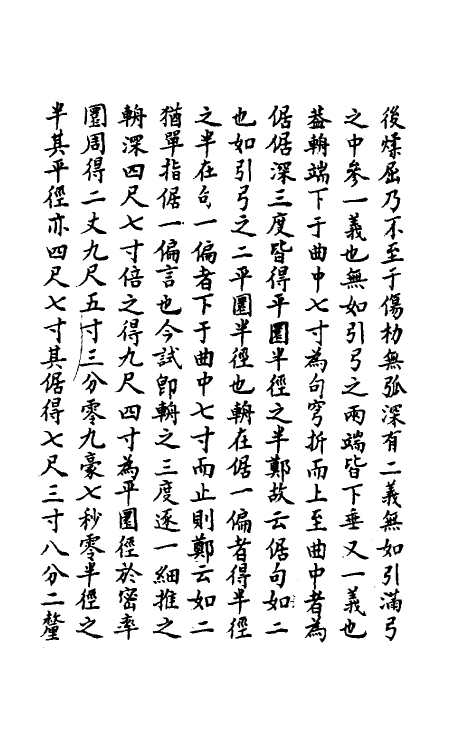 後煣屈乃不至于傷朸無弧深有二義無如引滿弓
之中參一義也無如引弓之兩端皆下垂又一義也
葢輈端下于曲中七寸為句穹折而上至曲中者為
倨倨深三度皆得平圜半徑之半鄭故云倨句如二
也如引弓之二平圜半徑也輈在倨一偏者得半徑
之半在句一偏者下于曲中七寸而止則鄭云如二
猶單指倨一偏言也今試卽輈之三度逐一細推之
輈深四尺七寸倍之得九尺四寸為平圜徑於密率
圜周得二丈九尺五寸三分零九豪七秒零半徑之
半其平徑亦四尺七寸其倨得七尺三寸八分二釐